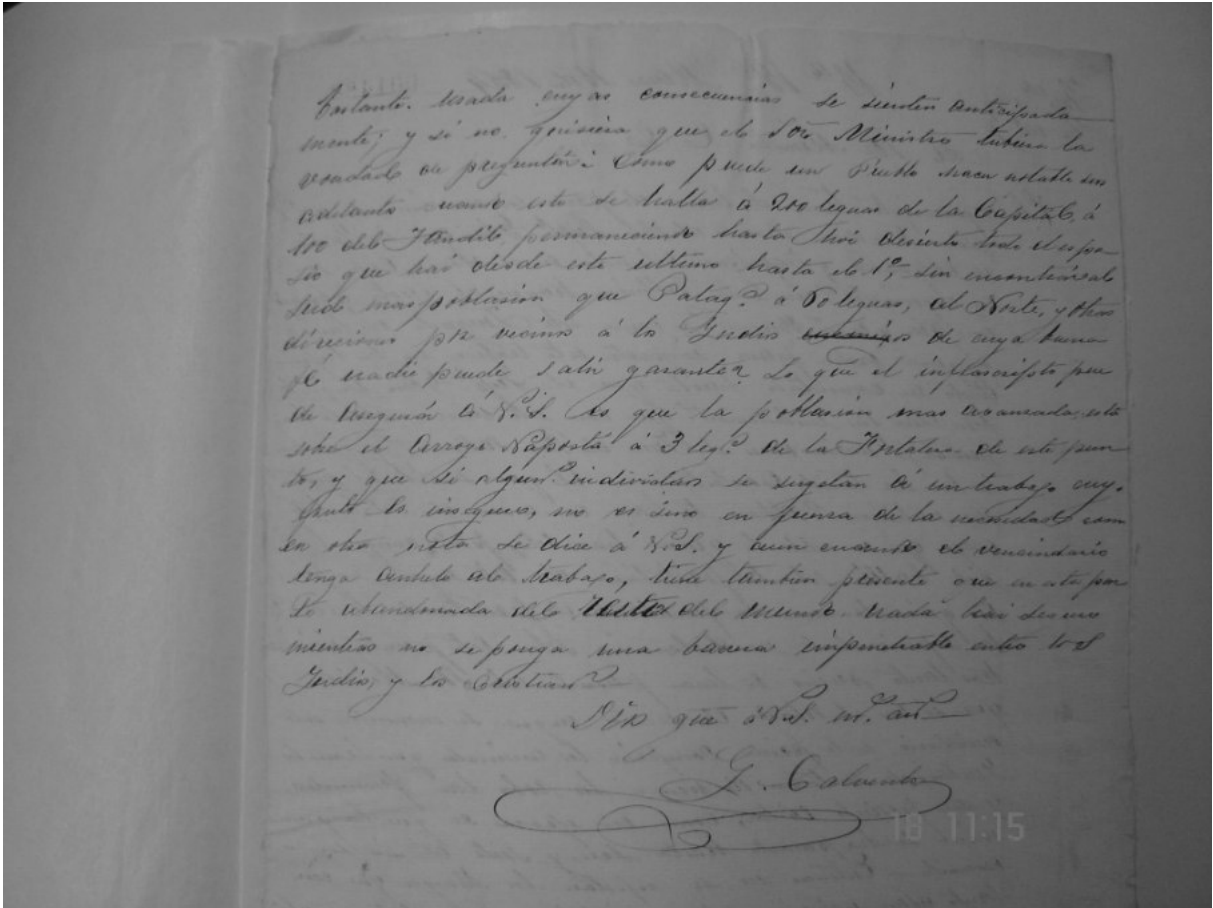 bastante usada cuyas consecuencias se sienten anticipada
mente; y si no quisiera que el Sor Ministro tubiera la
vondad de preguntar: Como puede un Pueblo hacer notable un
adelanto cuando este se halla á 200 leguas de la Capital, á
100 del Tandil, permaneciendo hasta hoi desierto todo el espa
sio que hai desde este ultimo hasta el 1º, sin encontrar al
Sud mas poblasion que Patags á 60 leguas, al Norte, y otras
direciones por vecinos á los Indios de cuya buena
fé nadie puede salir garante? Lo que el infrascripto pue
de asegurar á V.S. es que la poblasion mas avanzada está
sobre el arroyo Napostá á 3 legs de la Fortaleza de este pun
to, y que si algunos individuos se sugetan á un trabajo cuyo
fruto es inseguro, no es sino en fuerza de la necesidad como
en otra nota se dice á V.S. y aun cuando el vencindario
tenga anhelo al trabajo, tiene tambien presente que en esta par
te abandonada del resto del mundo nada hai seguro
mientras no se ponga una barrera impenetrable entre los
Indios, y los Cristians
Dios gue á V.S. ms. as
J. Calvento
18 11:15